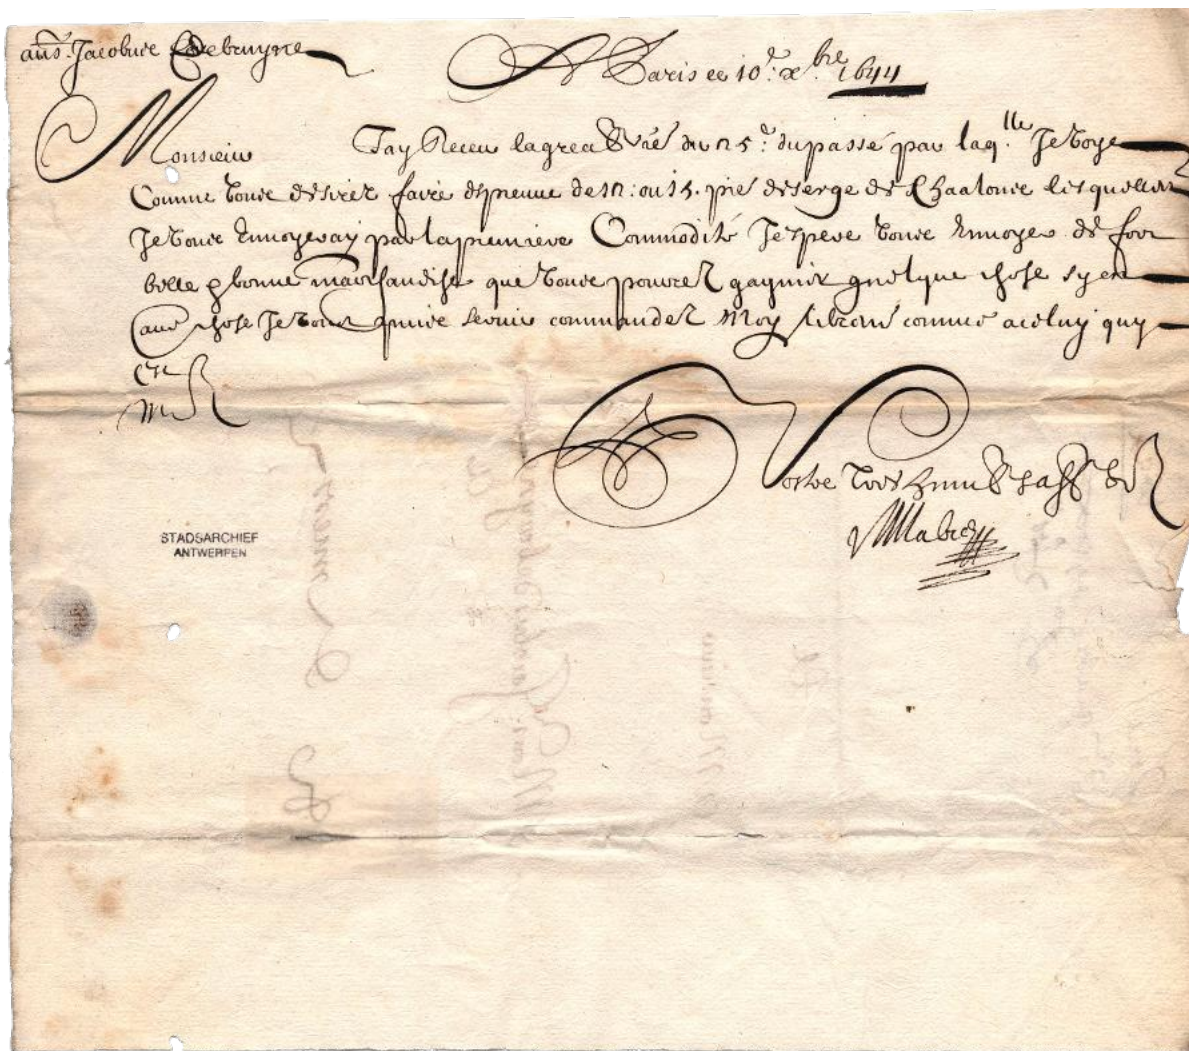 Jacobus debruyne
A Paris ce 10.e xbre 1644
Monsieur Jay Receu lagreable vre du 25.e du passé par laq.lle Je voye
Comme vous desirez faire espreuve de 12: ou 15. pie de serge de Chaalons lesquelles
Je vous Envoyeray par la premiere Commodité Jespere vous Envoyer de fort
belle & bonne marchandise que vous pourrez gaigner quelque chose sy en
autre chose Je vous puis servir commandez Moy librem comme a celuy quy
est
Mr
Vostre tres humb &
STADSARCHIEF
ANTWERPEN